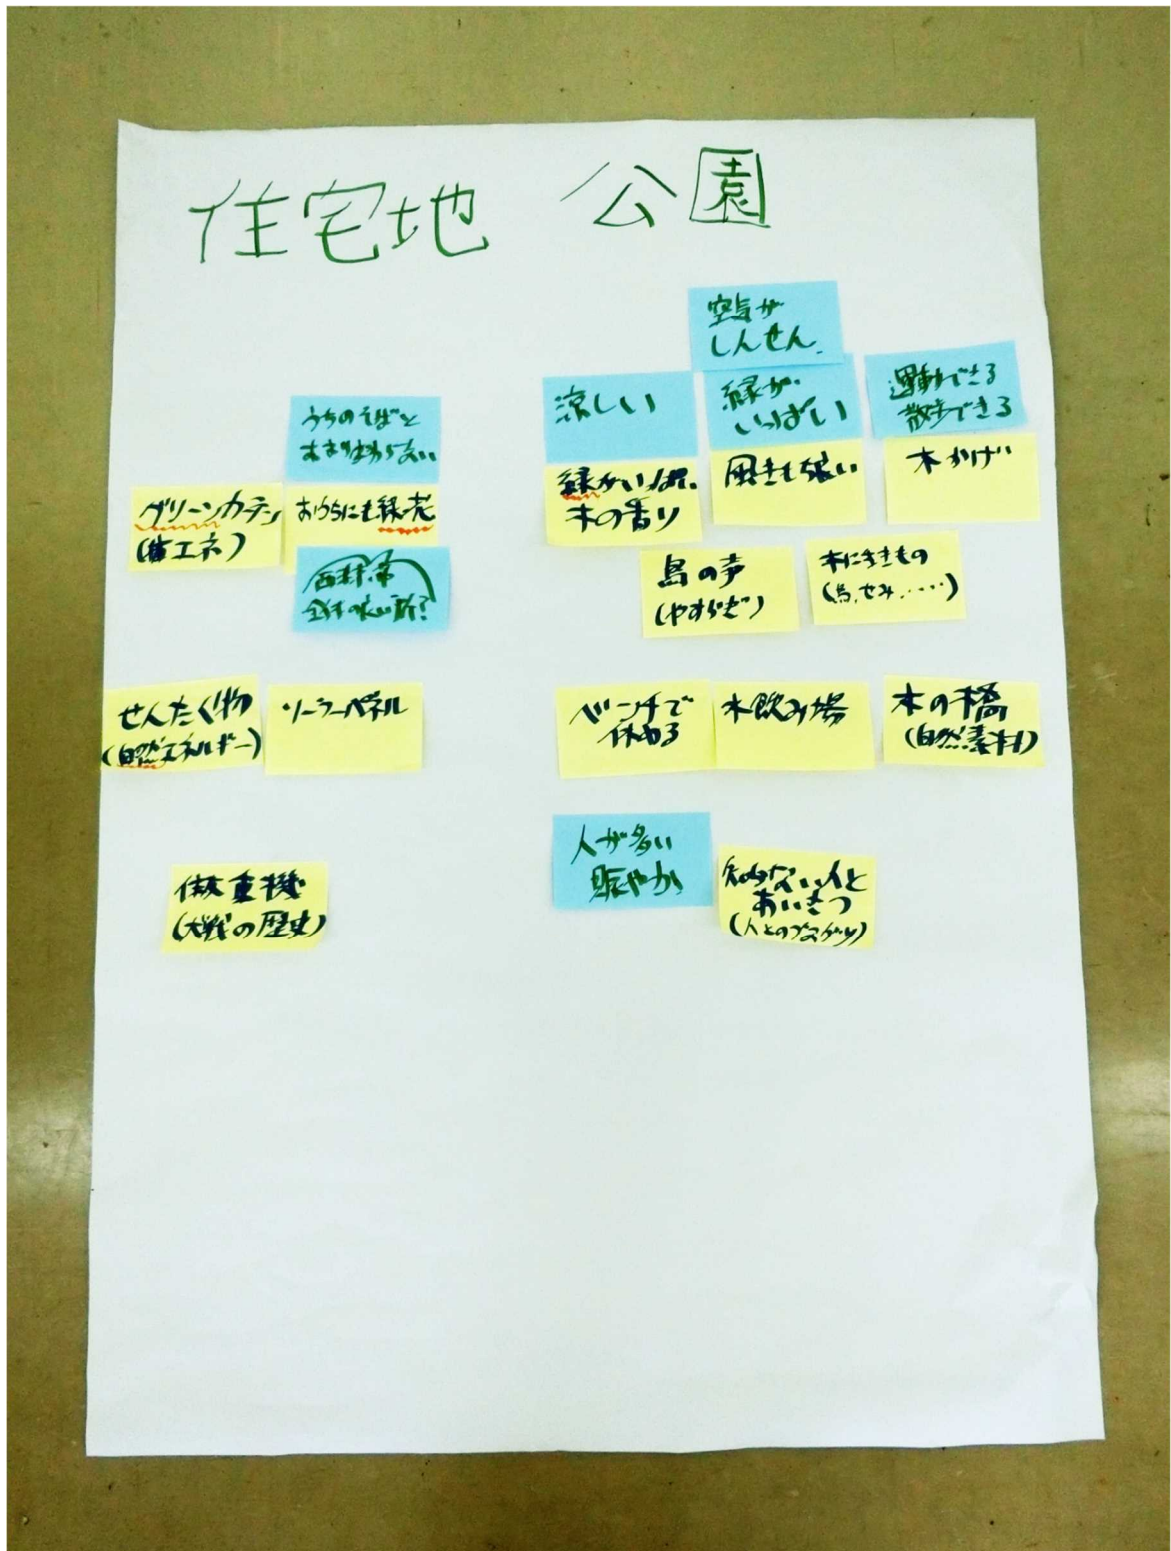 住宅地
公園
うちのそばと
あまり変わらない
グリーンカーテン
(省エネ)
おうちにも緑・花
せんたく物
(自然エネルギー)
ソーラーパネル
重機
(大戦の歴史)
空気が
しんせん.
涼しい
緑が
いっぱい
運動できる
散歩できる
緑がいっぱい
木の香り
風きも強い
木かげ
鳥の声
(やすらぎ)
木に生きもの
(鳥、せみ、‥‥)
ベンチで
休める
水飲み場
木の橋
(自然素材)
人が多い
賑やか
知らない人と
あいさつ
(人とのつながり)